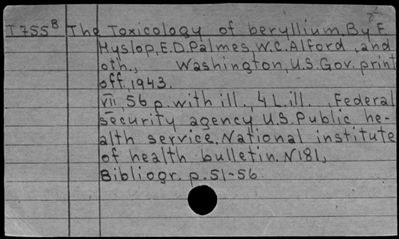 I755B The Toxicology of beryllium. By F.
Hyslop, E.D. Palmes, W.C. Alford, and
oth., Washington, U.S. Gov. print
off., 1943.
VII, 56 p. with ill., 4 L. ill., Federal
security agency U.S. Public he-
alth service. National institute
of health bulletin. N181,
Bibliogr. p. 51-56